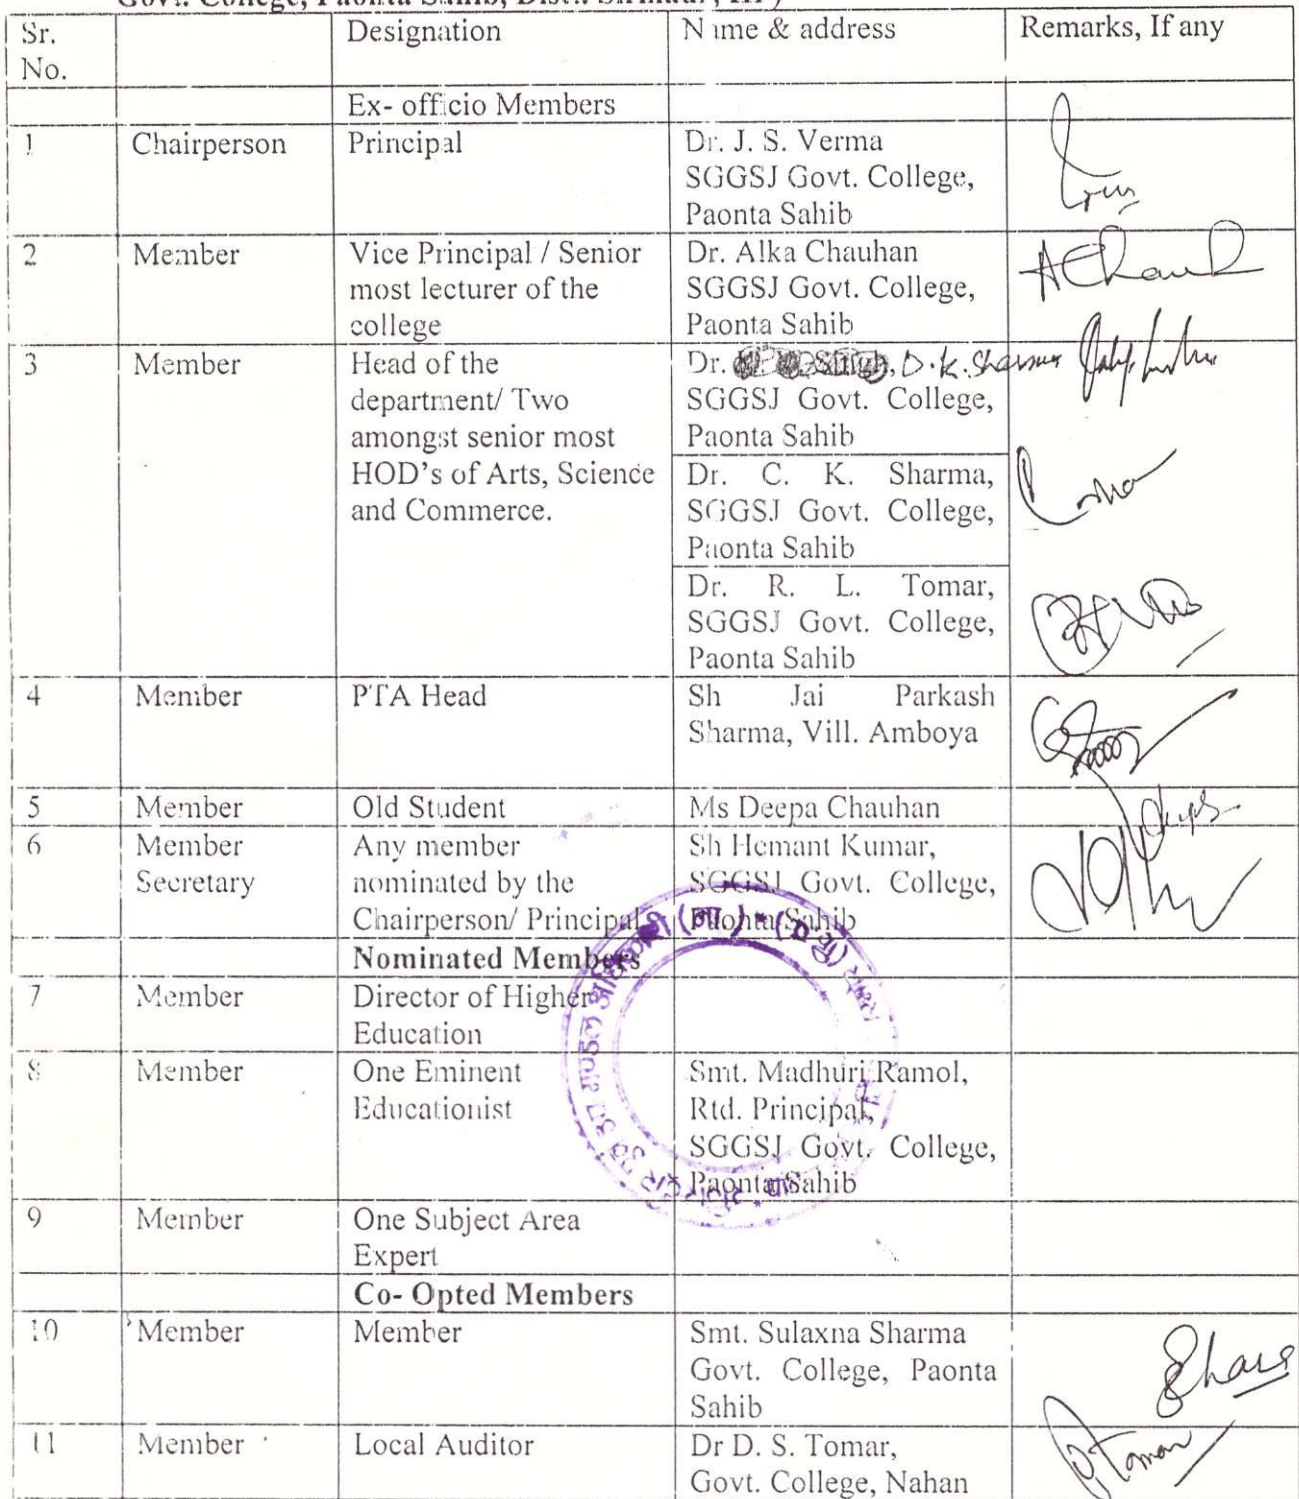 Govt. College, Paonta Sahib, Distt. Sirmaur, HP)
Sr. No. Designation Name & address Remarks, If any
Ex- officio Members
1 Chairperson Principal Dr. J. S. Verma
SGGSJ Govt. College,
Paonta Sahib
2 Member Vice Principal / Senior most lecturer of the college Dr. Alka Chauhan
SGGSJ Govt. College,
Paonta Sahib
AChauh
3 Member Head of the
department/ Two
amongst senior most
HOD's of Arts, Science
and Commerce.
Dr. D.K. Sharma
SGGSJ Govt. College,
Paonta Sahib
Dr. C. K. Sharma,
SGGSJ Govt. College,
Paonta Sahib
Dr. R. L. Tomar,
SGGSJ Govt. College,
Paonta Sahib
4 Member PTA Head Sh Jai Parkash
Sharma, Vill. Amboya
5 Member Old Student Ms Deepa Chauhan
6 Member
Secretary
Any member
nominated by the
Chairperson/ Principal
Sh Hemant Kumar,
SGGSJ Govt. College,
Paonta Sahib
Nominated Members
7 Member Director of Higher
Education
8 Member One Eminent
Educationist
Smt. Madhuri Ramol,
Rtd. Principal,
SGGSJ Govt. College,
Paonta Sahib
9 Member One Subject Area
Expert
Co- Opted Members
10 Member Member Smt. Sulaxna Sharma
Govt. College, Paonta
Sahib
11 Member Local Auditor Dr D. S. Tomar,
Govt. College, Nahan
Tomar